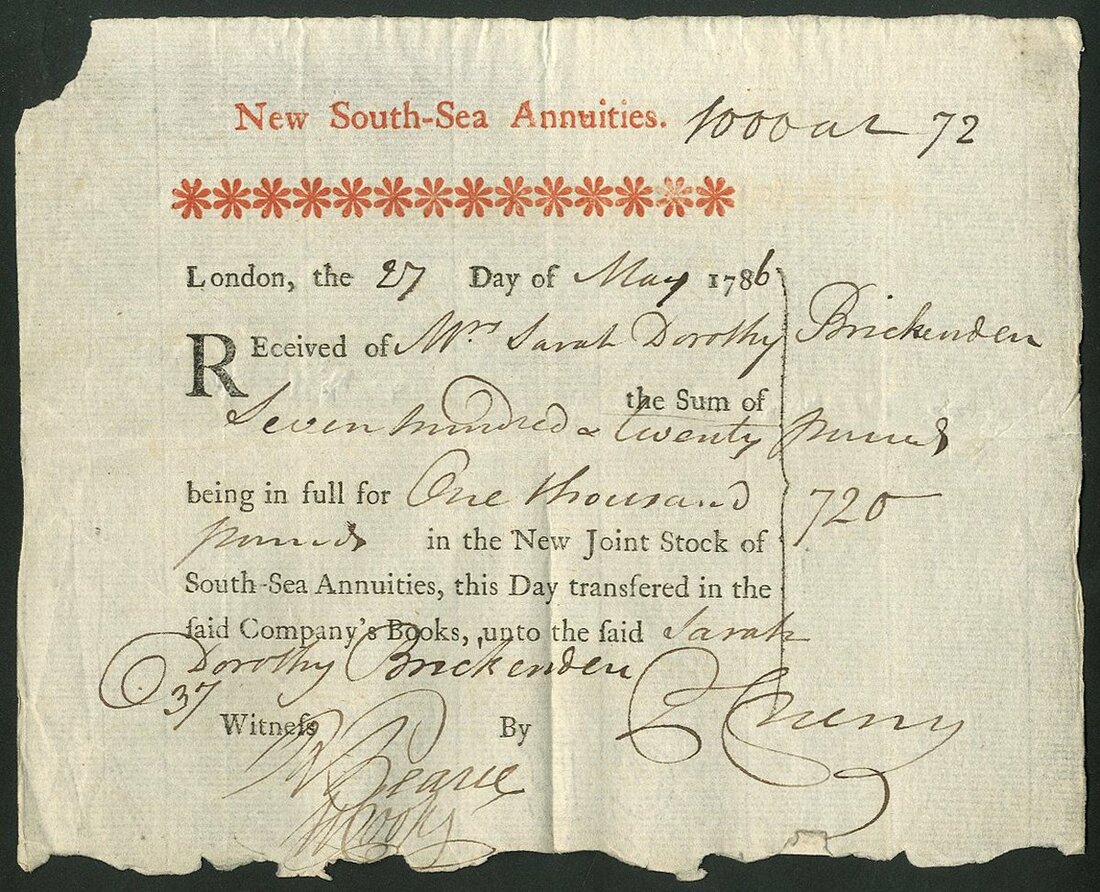 New South-Sea Annuities. 1000 at 72
London, the 27 Day of May 1786
REceived of Mrs Sarah Dorothy Brickenden
the Sum of
Seven hundred & twenty pounds
being in full for One thousand 720
pounds in the New Joint Stock of
South-Sea Annuities, this Day transfered in the
ſaid Company's Books, unto the ſaid Sarah
Dorothy Brickenden
37
Witneſs By